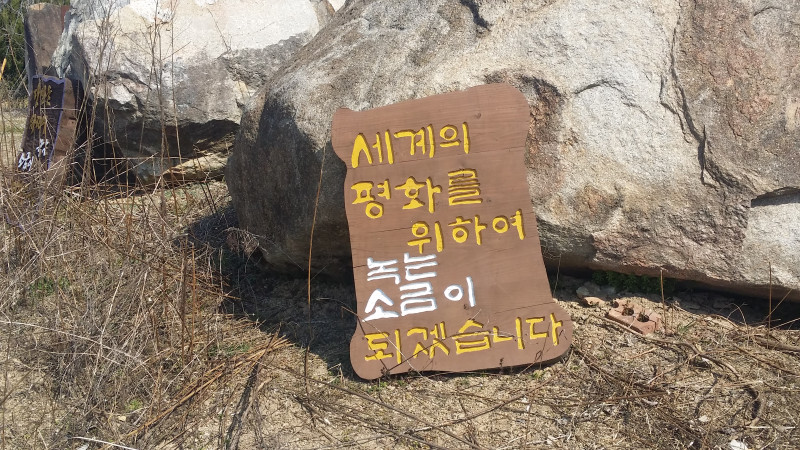 세계의
평화를
위하여
녹는
소금이
되겠습니다